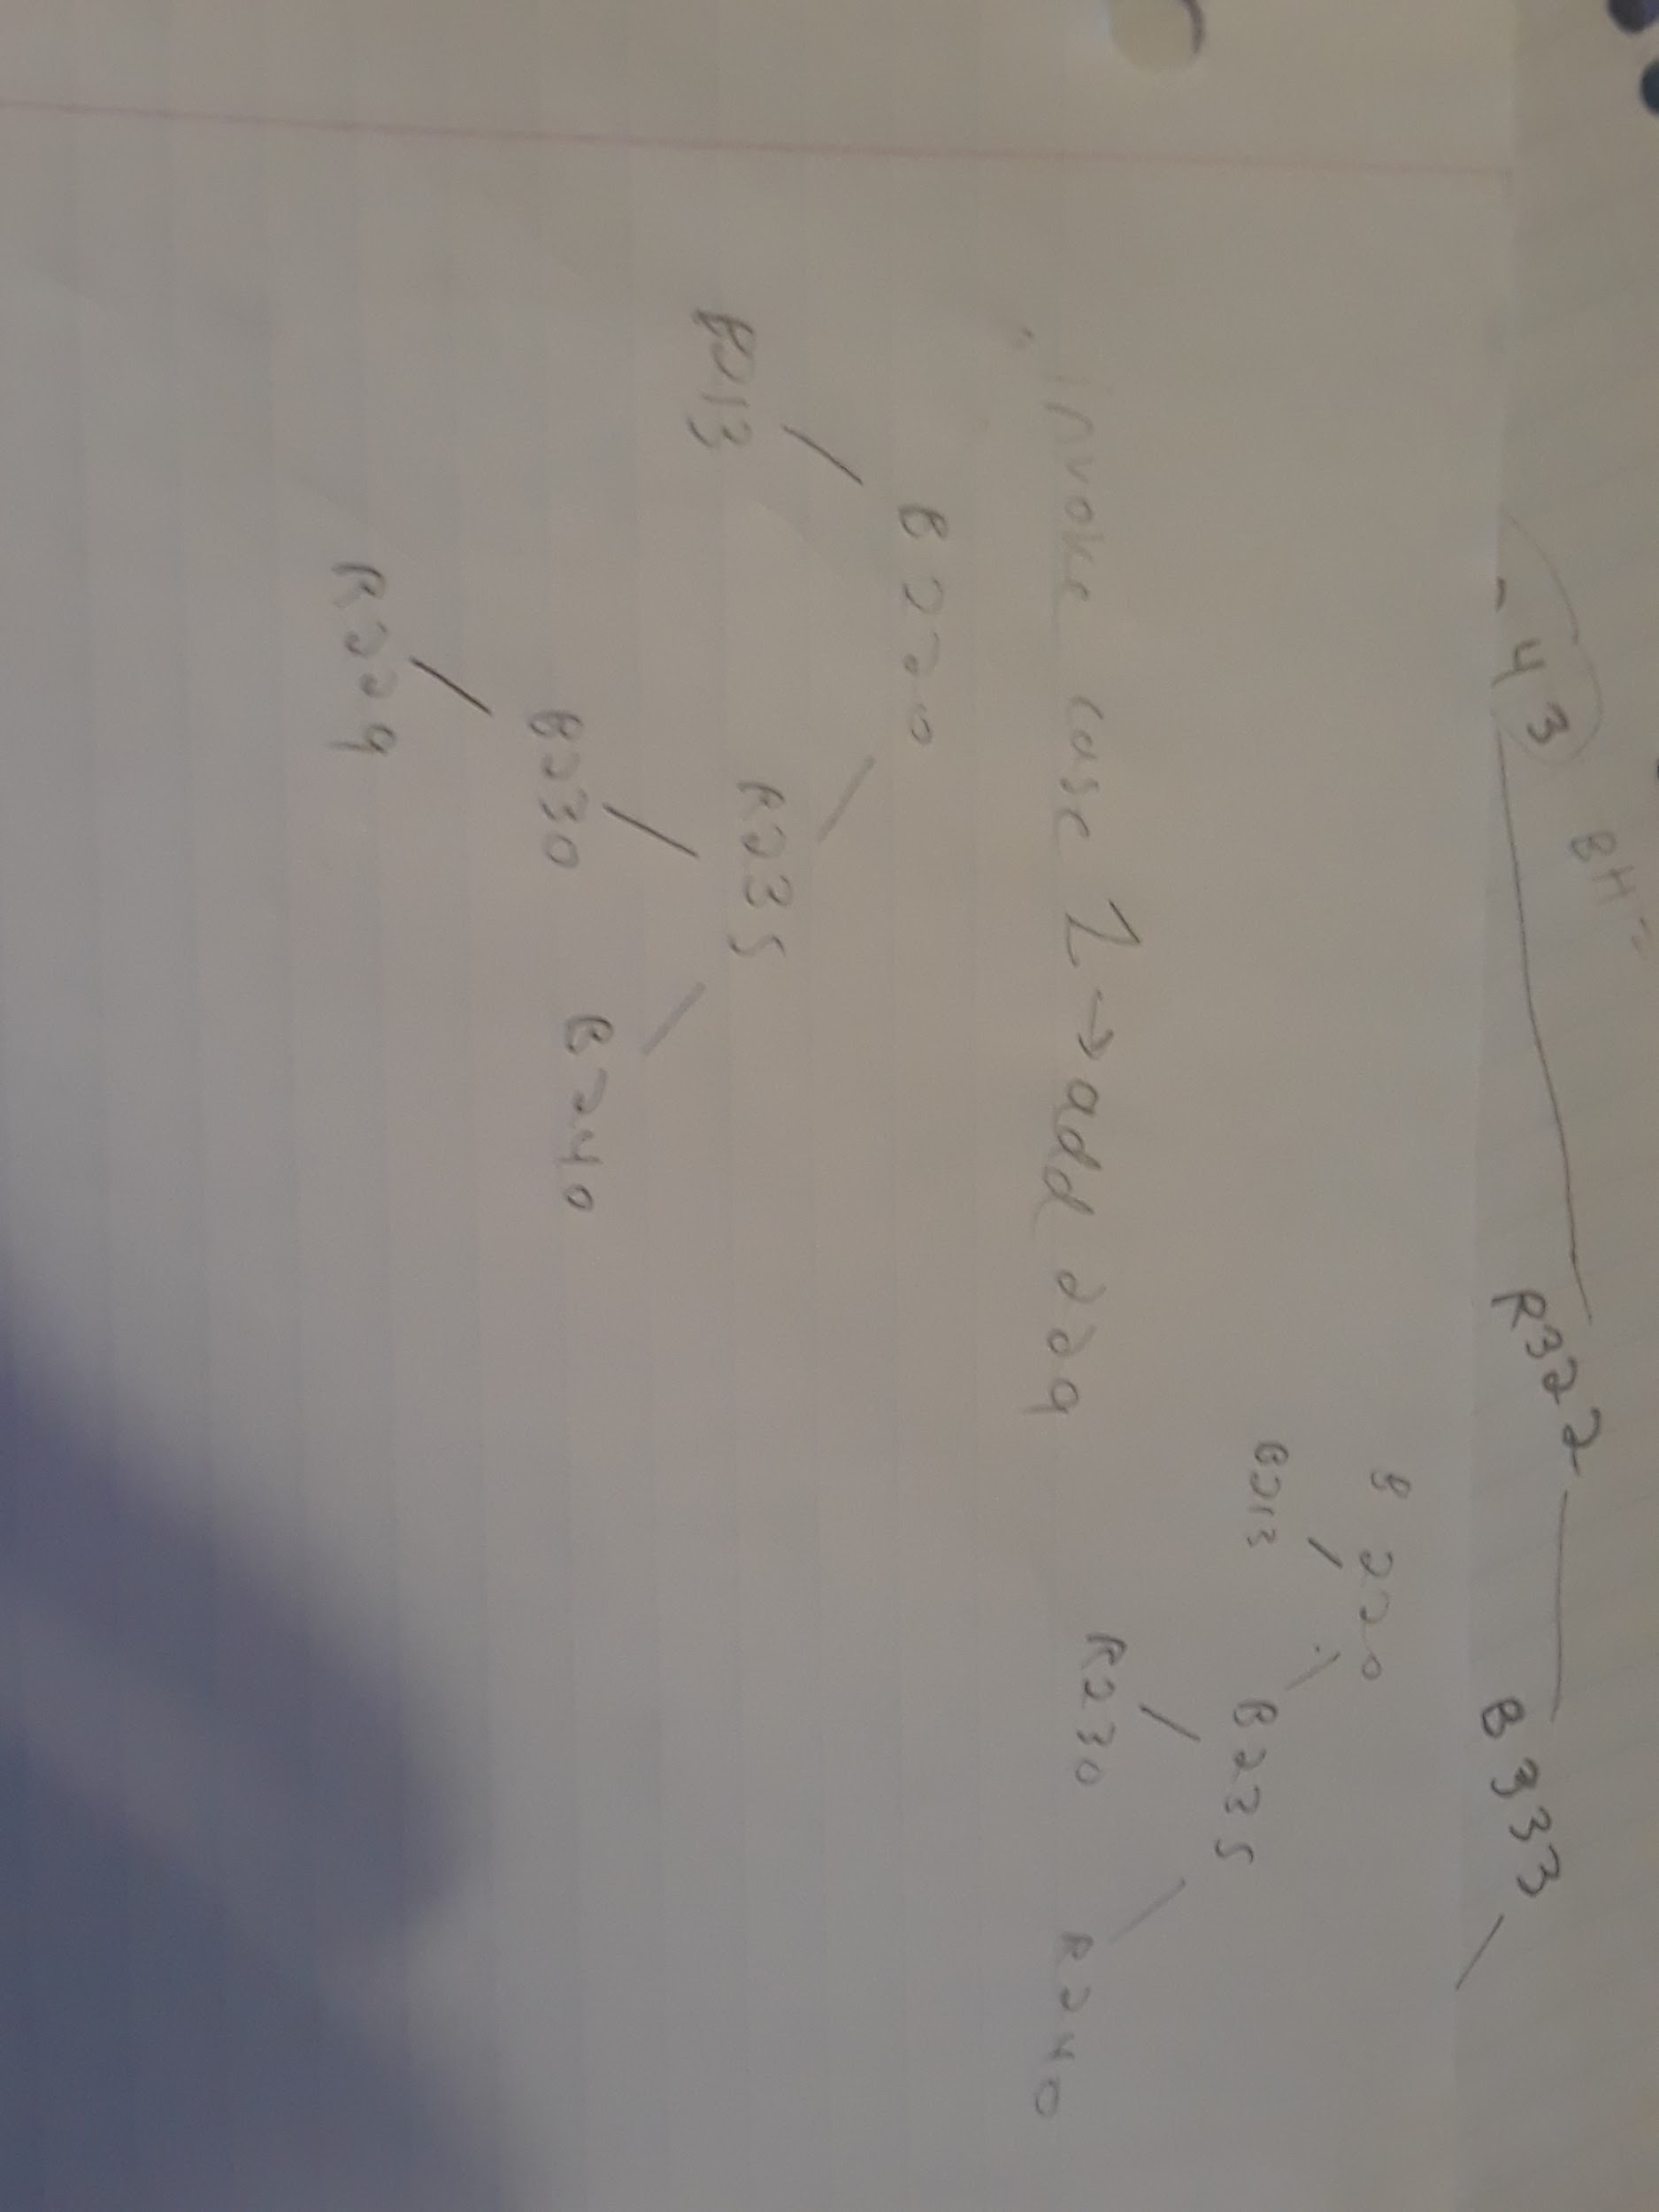 BH=
-43 R322 B333
B 220
B213 B235
R230 R240
Invoke case 1 → add 229
B 220
B213 R235
B230 B240
R229